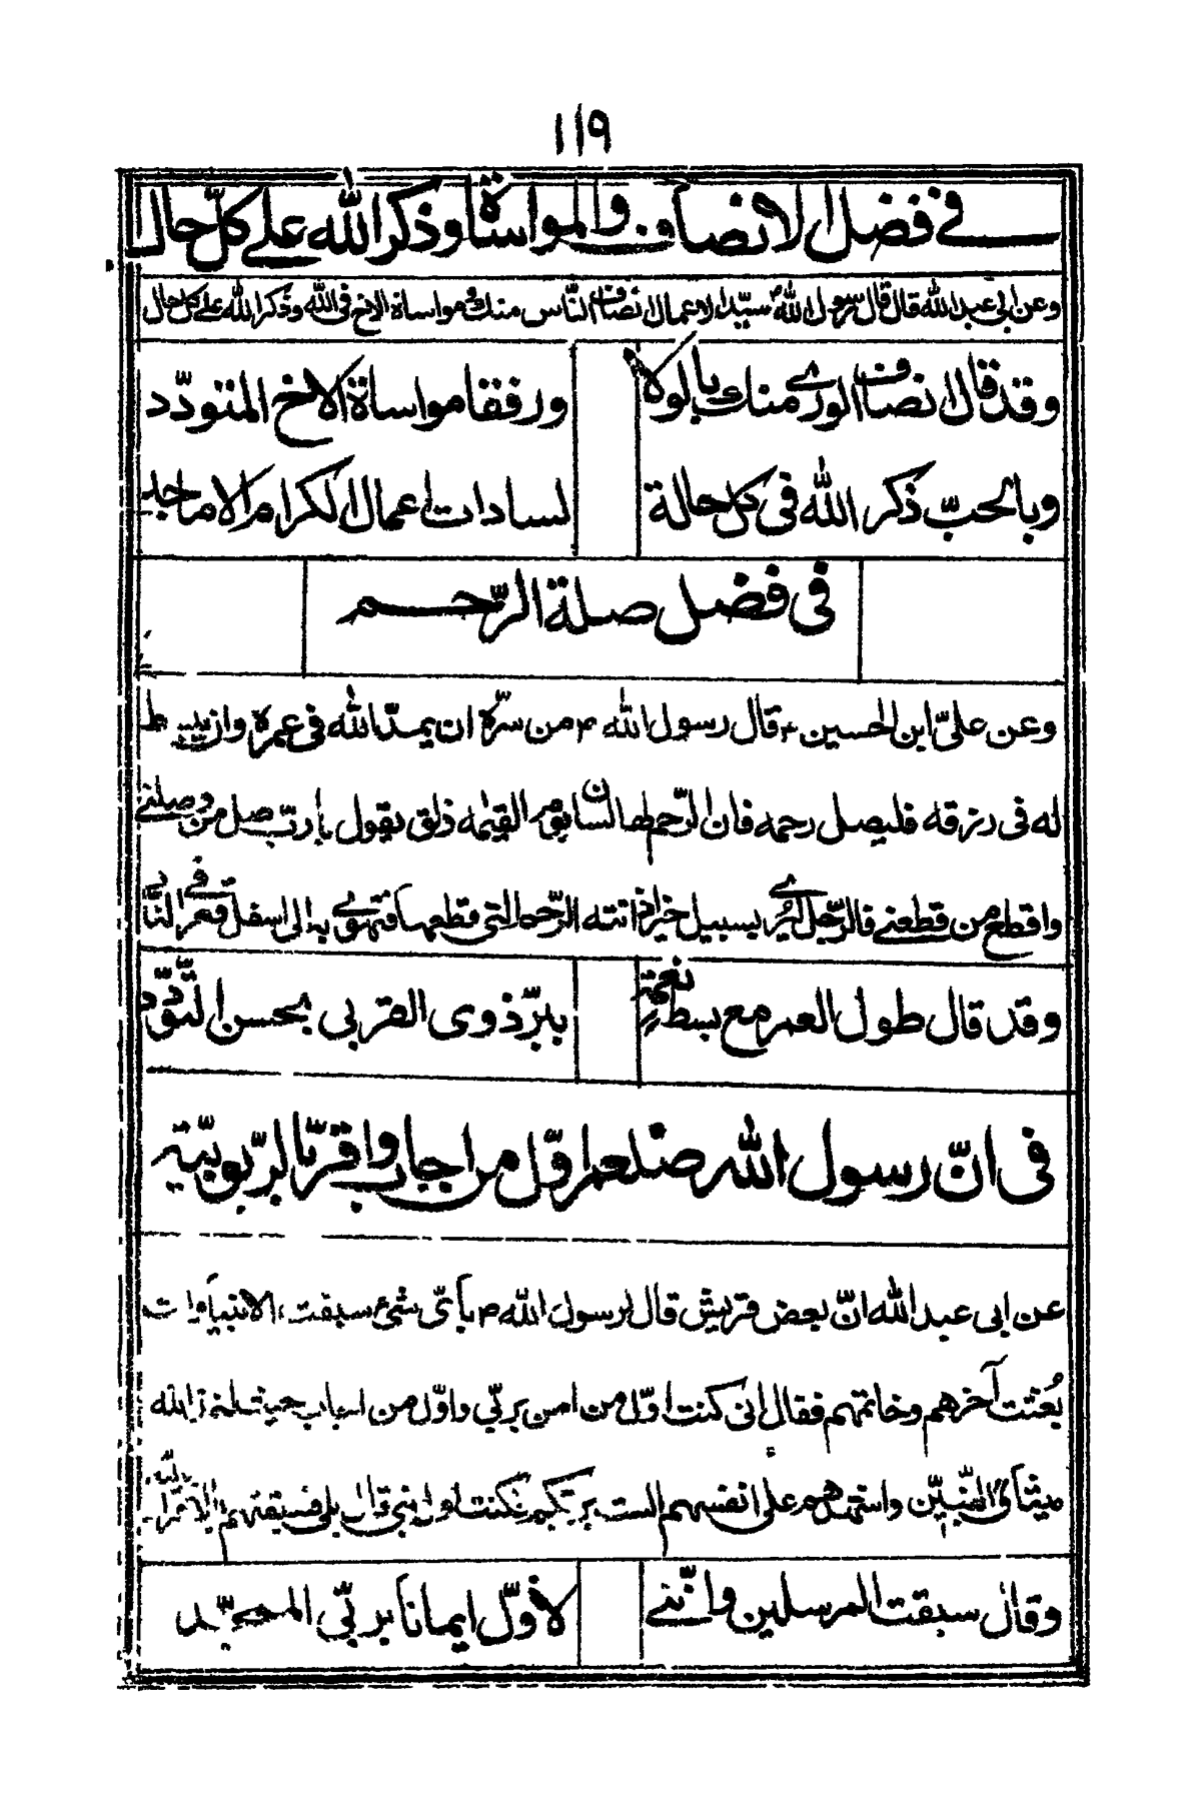 ١١٩
في فضل الانصاف والمواساة وذكر الله على كلّ حال
وعن ابي عبد الله قال قال رسول الله ص سيّد الاعمال انصاف النّاس منك ومواساة الاخ في الله وذكر الله على كل حال
وقد قال انصاف الورى منك بالولا
ورفقا مواساة الاخ المتودّد
وبالحبّ ذكر الله في كل حالة
لسادات اعمال الكرام الاماجد
في فضل صلة الرّحم
وعن عليّ ابن الحسين ع قال رسول الله ص من سرّه ان يمدّ الله في عمره وان يبسط
له في رزقه فليصل رحمه فان الرّحم لها لسان يوم القيٰمه ذلق يقول يا ربّ صل من وصلني
واقطع من قطعني فالرّجل ليُرى بسبيل خير اذا اتته الرّحم التي قطعها فتهوى به الى اسفل قعر في النار
وقد قال طول العمر مع بسط نعمةٍ
ببرّ ذوى القربى بحسن التّودّد
في انّ رسول الله صلعم اوّل من اجاب واقرّ بالربوبيّته
عن ابى عبد الله انّ بعض قريش قال لرسول الله ص باَيّ شئ سبقت الانبياء وانت
بُعثت آخرهم وخاتمهم فقال انى كنت اوّل من امن بربّي واوّل من اجاب حيث اخذ الله
ميثاق النبيّين واشهدهم على انفسهم الست بربّكم فكنت اول نبى قال بلى فسبقتهم بالاقرار بالله
وقال سبقت المرسلين وانّني
لأوّل ايماناَ بربّي الممجّد